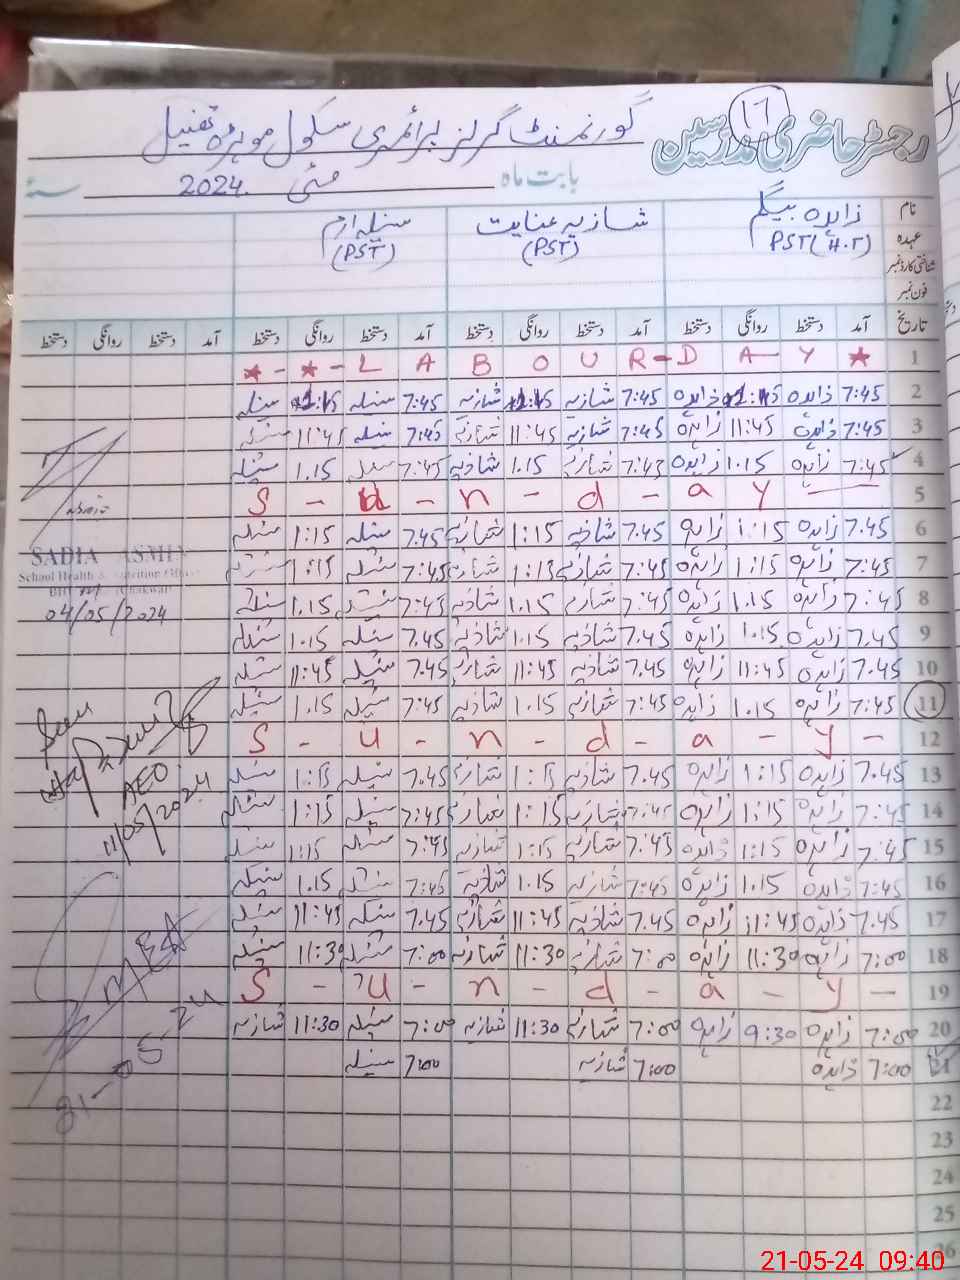 ۱٦
رجسٹر حاضری مدرسین گورنمنٹ گرلز پرائمری سکول موہڑہ
بابت ماہ مئی 2024 سنۂ
نام زاہدہ بیگم شازیہ عنایت سنیلہ ارم
عہدہ PST(H.T) (PST) (PST)
شناختی کارڈ نمبر
فون نمبر
تاریخ آمد دستخط روانگی دستخط آمد دستخط روانگی دستخط آمد دستخط روانگی دستخط آمد دستخط روانگی دستخط
1 * - * - L A B O U R - D A - Y *
2 7:45 زاہدہ زاہدہ 7:45 شازیہ شازیہ 7:45 سنیلہ سنیلہ
3 7:45 زاہدہ 11:45 زاہدہ 7:45 شازیہ 11:45 شازیہ 7:45 سنیلہ 11:45 سنیلہ
4 7:45 زاہدہ 1.15 زاہدہ 7:45 شازیہ 1.15 شازیہ 7:45 سنیلہ 1.15 سنیلہ
5 S - u - n - d - a y
6 7.45 زاہدہ 1:15 زاہدہ 7.45 شازیہ 1:15 شازیہ 7.45 سنیلہ 1:15 سنیلہ
7 7:45 زاہدہ 1:15 زاہدہ 7:45 شازیہ 1:15 شازیہ 7:45 سنیلہ 1:15 سنیلہ
8 7:45 زاہدہ 1.15 زاہدہ 7:45 شازیہ 1.15 شازیہ 7:45 سنیلہ 1.15 سنیلہ
9 7.45 زاہدہ 1.15 زاہدہ 7.45 شازیہ 1.15 شازیہ 7.45 سنیلہ 1.15 سنیلہ
10 7.45 زاہدہ 11:45 زاہدہ 7.45 شازیہ 11:45 شازیہ 7.45 سنیلہ 11:45 سنیلہ
11 7:45 زاہدہ 1.15 زاہدہ 7:45 شازیہ 1.15 شازیہ 7:45 سنیلہ 1.15 سنیلہ
12 S - u - n - d - a - y -
13 7.45 زاہدہ 1:15 زاہدہ 7.45 شازیہ 1:15 شازیہ 7.45 سنیلہ 1:15 سنیلہ
14 7:45 زاہدہ 1:15 زاہدہ 7:45 شازیہ 1:15 شازیہ 7:45 سنیلہ 1:15 سنیلہ
15 7:45 زاہدہ 1:15 زاہدہ 7:45 شازیہ 1:15 شازیہ 7:45 سنیلہ 1:15 سنیلہ
16 7:45 زاہدہ 1.15 زاہدہ 7:45 شازیہ 1.15 شازیہ 7:45 سنیلہ 1.15 سنیلہ
17 7.45 زاہدہ 11:45 زاہدہ 7.45 شازیہ 11:45 شازیہ 7.45 سنیلہ 11:45 سنیلہ
18 7:00 زاہدہ 11:30 زاہدہ 7:00 شازیہ 11:30 شازیہ 7:00 سنیلہ 11:30 سنیلہ
19 S - u - n - d - a - y -
20 7:00 زاہدہ 9:30 زاہدہ 7:00 شازیہ 11:30 شازیہ 7:00 سنیلہ 11:30 شازیہ
21 7:00 زاہدہ 7:00 شازیہ 7:00 سنیلہ
22
23
24
25
26
SADIA
School Health & Nutrition Officer
Chakwal
04/05/2024
Seen
AEO
11/05/2024
MEA
21-05-24
21-05-24 09:40